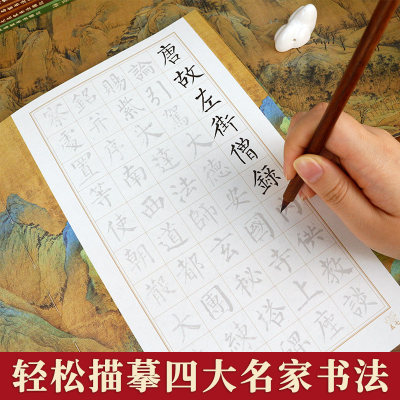 唐故左街僧錄
供教談
論引駕大德安國寺上座
賜紫大達法師玄秘塔
銘并序南西道都團練
察處置等使朝散大
轻松描摹四大名家书法